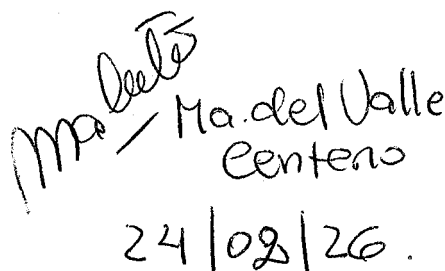 Ma. del Valle
Centeno
24/02/26.